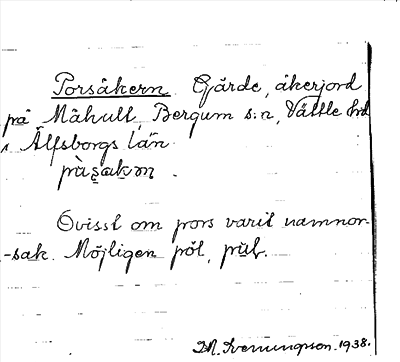 Porsåkern. Gärde, åkerjord
på Måhult, Bergum s:n, Vättle hd
i Älfsborgs län
Ovisst om pors varit namnor-
-sak. Möjligen pöl,
1938.